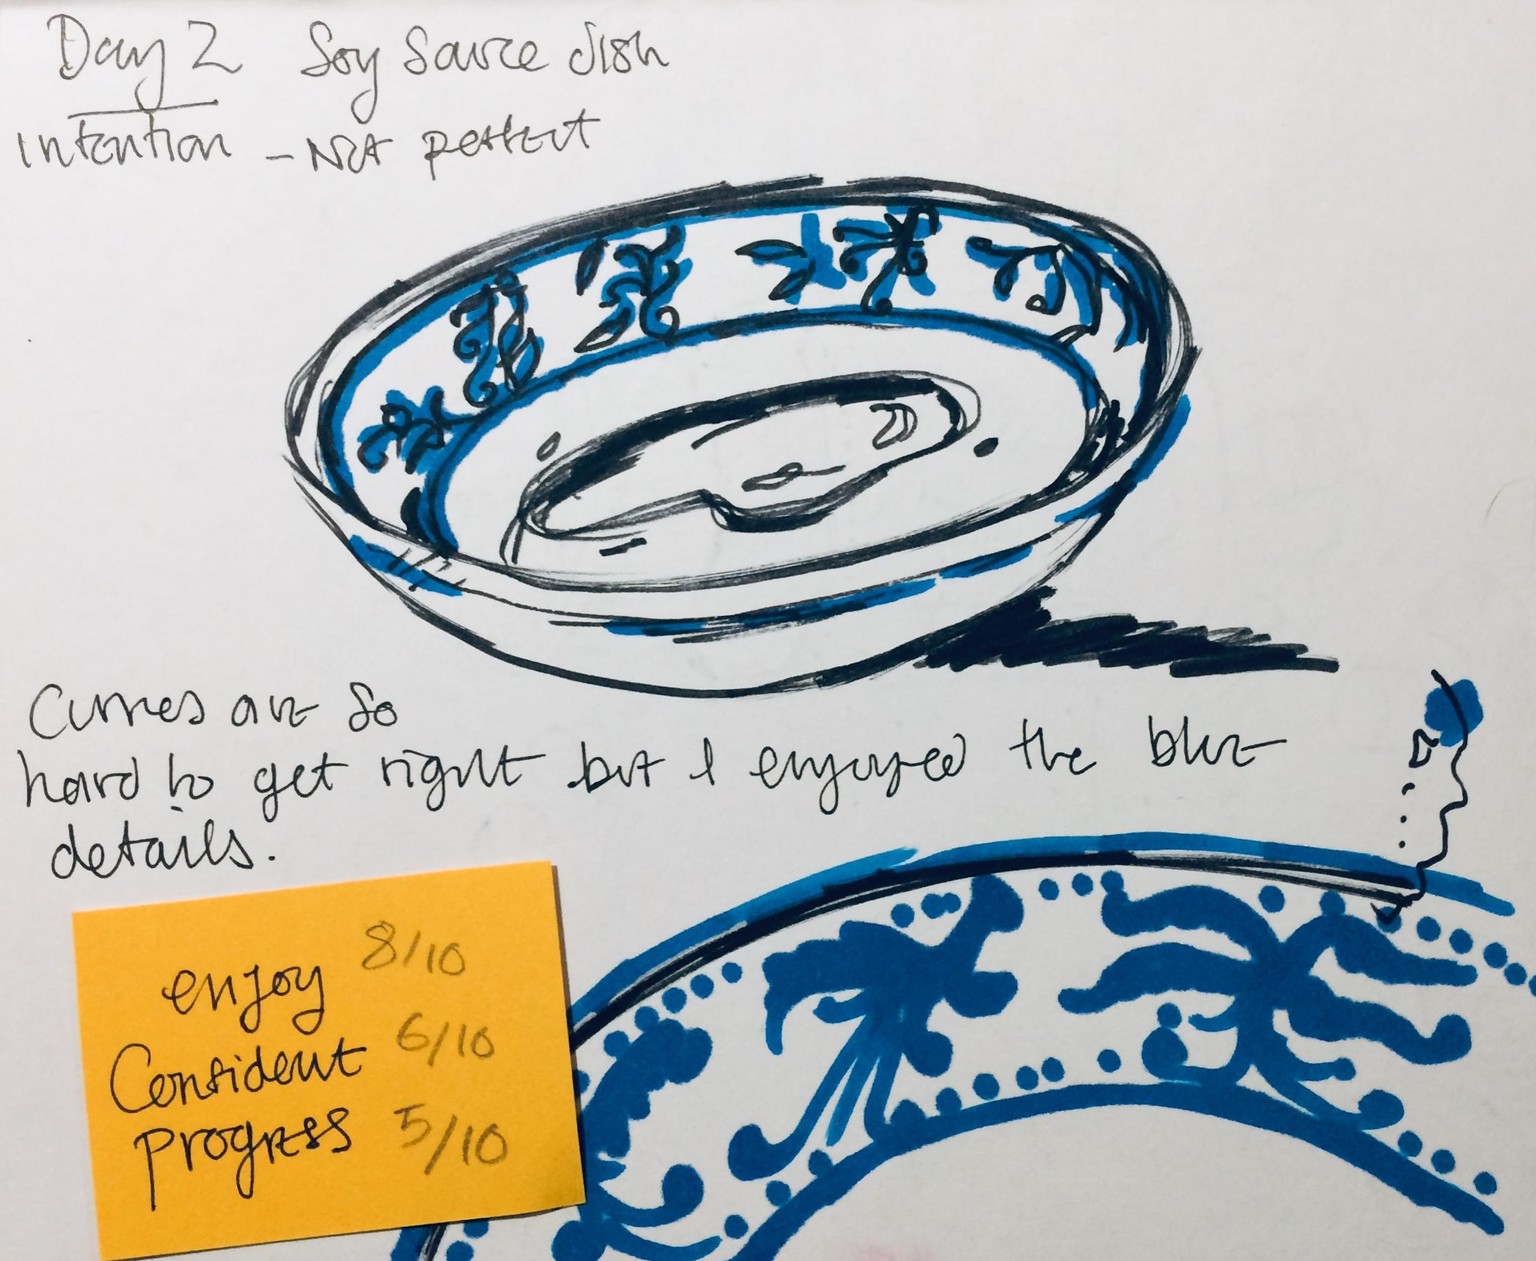 Day 2 Soy Sauce dish
intention - Not perfect
Curves are so
hard to get right but I enjoyed the blue
details.
enjoy 8/10
Confident 6/10
progress 5/10